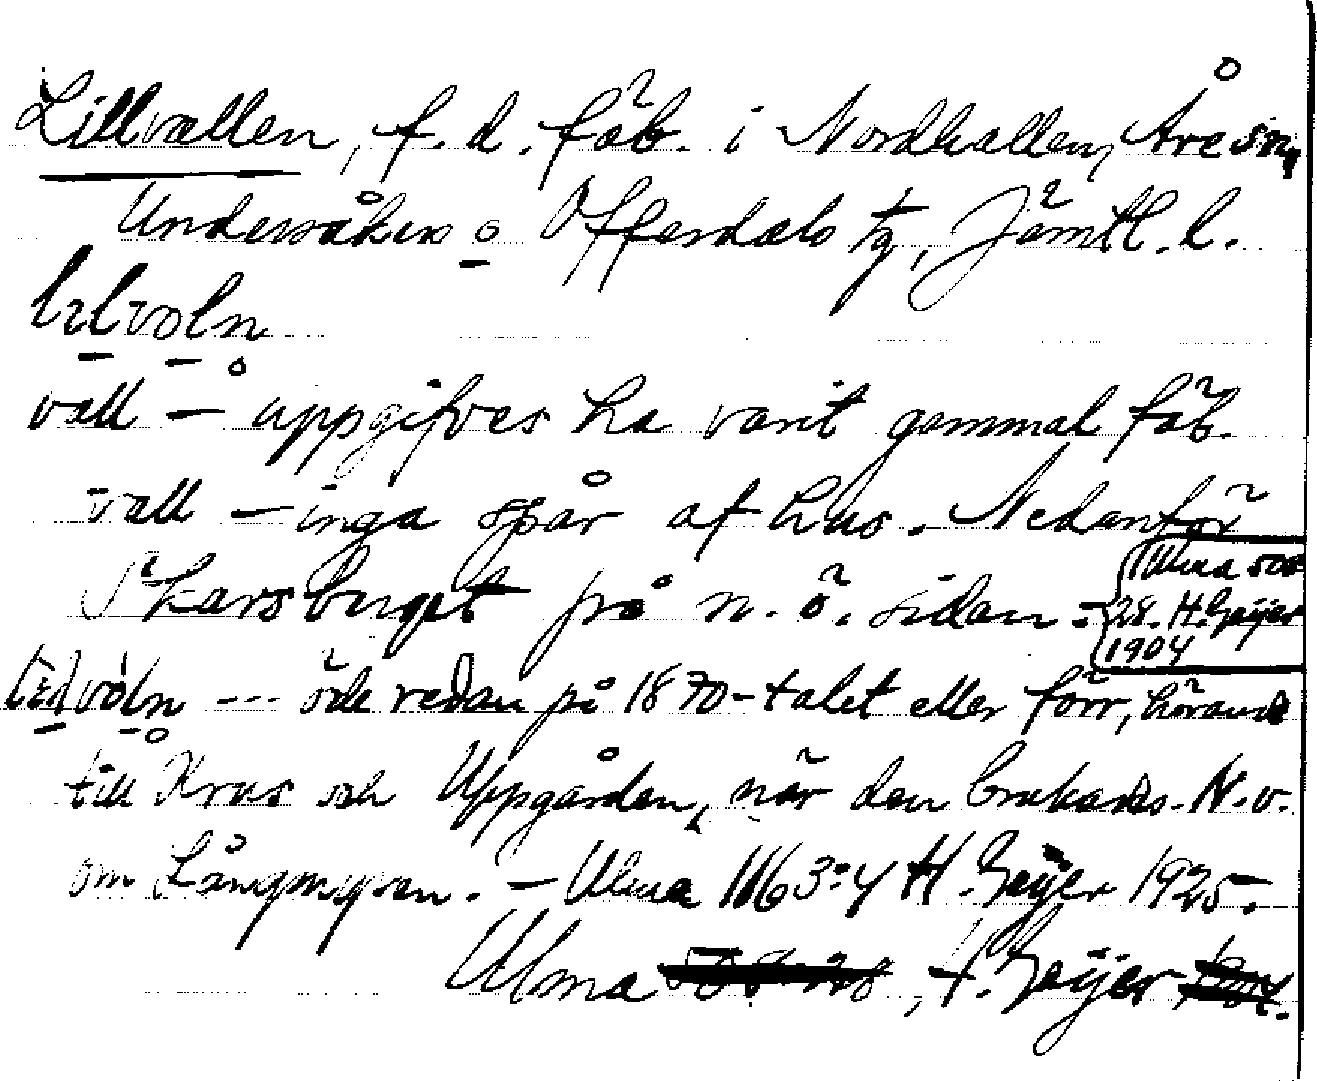 Lillvallen, f. d. fäb. i Nordhallen, Åre sn,
Undersåkers o Offerdals tg, Jämtl. l.
lilvoln
vall — uppgifves ha varit gammal fäb.
vall — inga spår af hus. Nedanför
Skarsberget på n. ö. sidan -
Ulma 508:
28. H. Geijer
1904
voln --- öde redan på 1870-talet eller förr, hörande
till och Uppgården, när den brukades. N.v.
om Långmyren. — Ulma 1163:4 H. Geijer 1925.
Ulma , H. Geijer